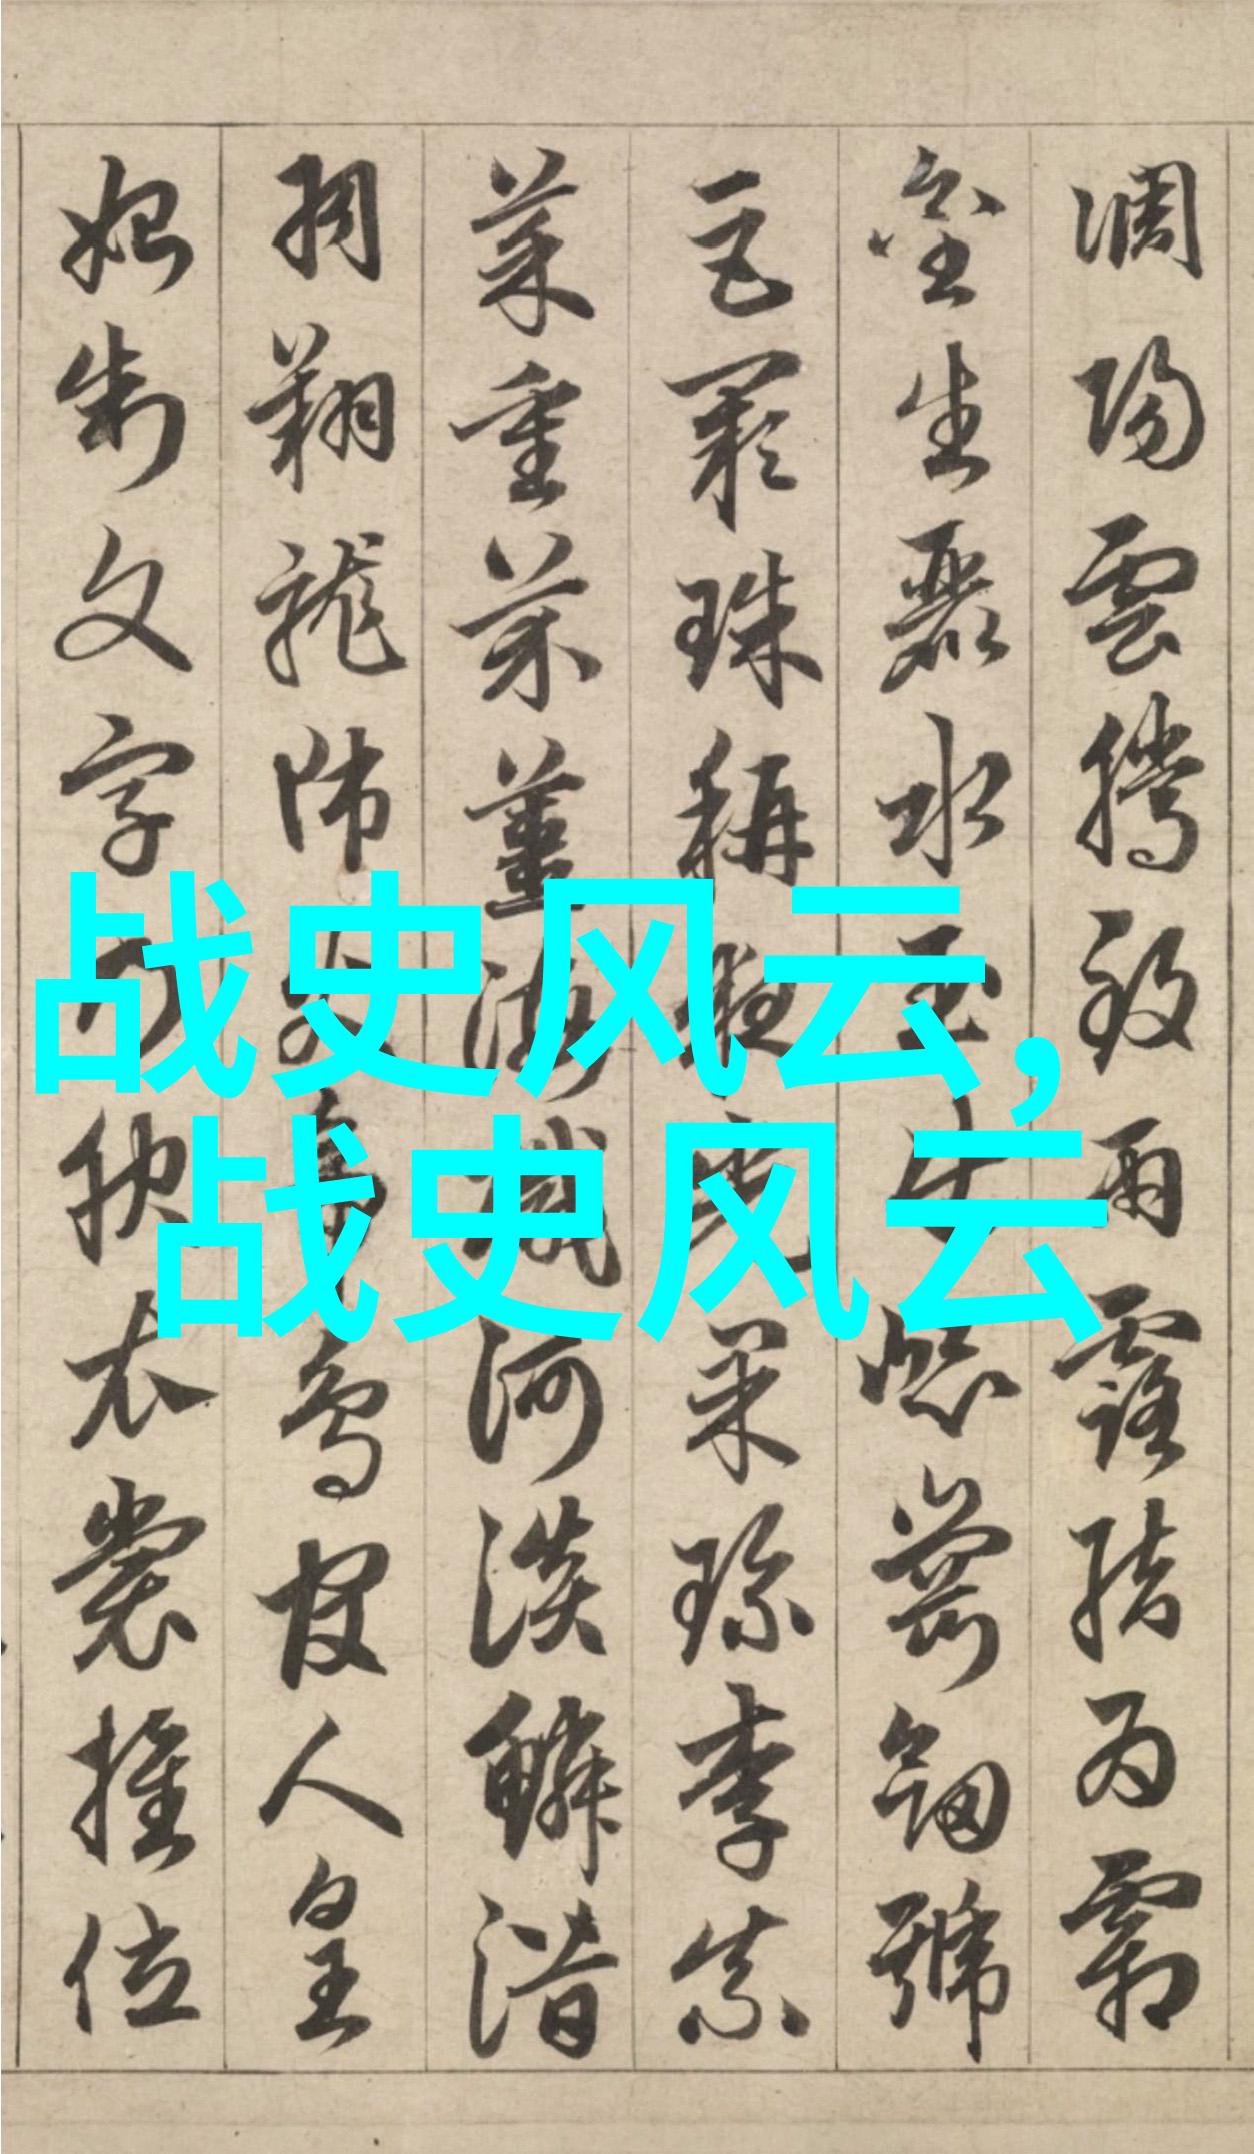 調陽雲騰致雨露結為霜
金生麗水玉出崑崗劍號
巨闕珠稱夜光果珍李柰
菜重芥薑海鹹河淡鱗潛
羽翔龍師火帝鳥官人皇
始制文字乃服衣裳推位
战史风云,
战史风云